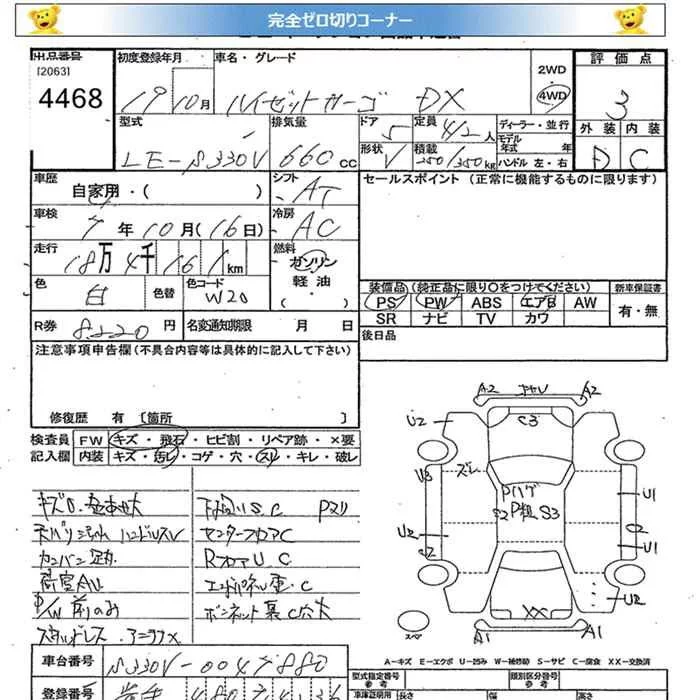 完全ゼロ切りコーナー
出品番号 初度登録年月 車名・グレード 評価点
[2063]
4468 19年10月 ハイゼットカーゴ DX 2WD 4WD 3
型式 排気量 ドア 定員 ディーラー・並行 外装 内装
LE-S330V 660cc 5 4/2人 モデル年式 年 D C
形状 V 積載 250/350kg ハンドル 左・右
車歴 シフト セールスポイント (正常に機能するものに限ります)
自家用・( ) AT
車検 7年10月(16日) 冷房 AC
走行 18万4千161km 燃料 ガソリン
軽油
・( )
色 白 色替 色コード W20
装備品 (純正品に限り○をつけてください) 新車保証書
PS PW ABS エアB AW 有・無
SR ナビ TV カワ
R券 8220円 名変通知期限 月 日 後日品
注意事項申告欄(不具合内容等は具体的に記入して下さい)
修復歴 有 [箇所 ]
検査員 FW キズ・飛石・ヒビ割・リペア跡・×要
記入欄 内装 キズ・汚レ・コゲ・穴・スレ・キレ・破レ
下回りS.C Pマリ
ハンドルスレ センターフロアC
カンバン RフロアU C
荷室AU エンドパネル C
P/W前のみ ボンネット裏C穴大
スタッドレス
A2 キャビ A2
U2 C3
U3 ズレ U1
Pハゲ
S2 P粗 S3
U2 C2
C2 U1
U2
XX
スペ A1 A1
A-キズ E-エクボ U-凹み W-補修跡 S-サビ C-腐食 XX-交換済
車台番号 S330V-0047880
型式指定番号 参考 類別区分番号 参考
登録番号 480
車庫証明用 長さ 幅 高さ